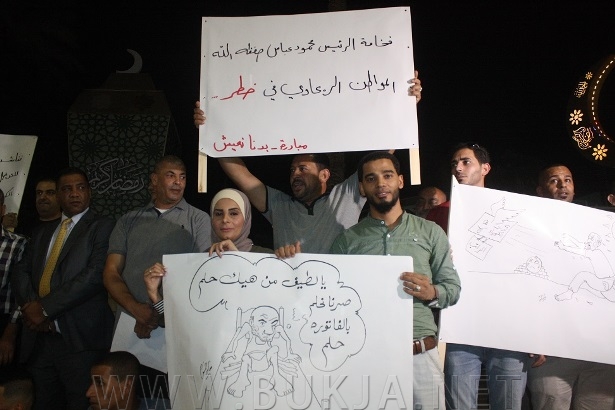 فخامة الرئيس محمود عباس حفظه الله
المواطن الريحاوي في خطر..
مبادرة - بدنا نعيش
يا لطيف من هيك حلم
صرنا نحلم
بالفاتوره
حلم
WWW.BUKJA.NET